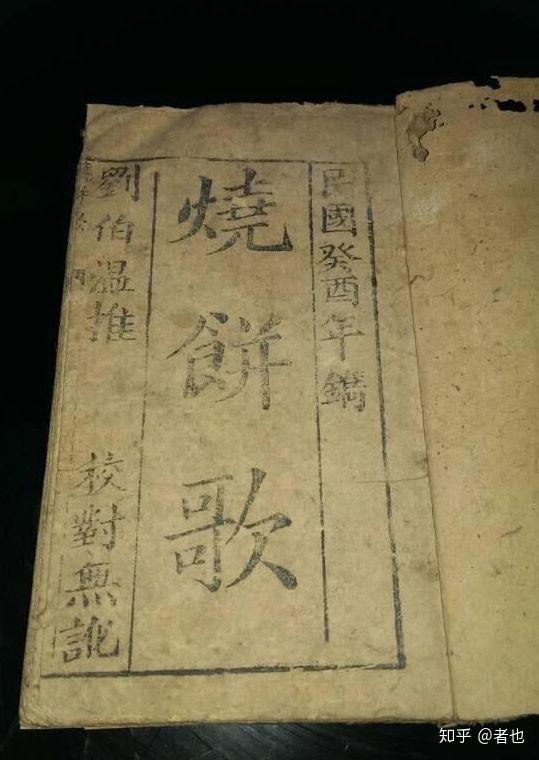 民國癸酉年鐫
燒餅歌
劉伯溫推 校對無訛
知乎 @者也